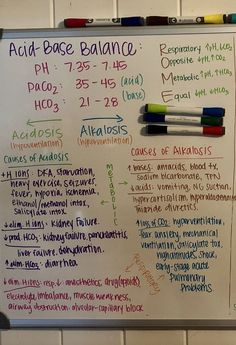 Acid-Base Balance:
PH: 7.35 - 7.45
PaCO2: 35 - 45 (acid)
HCO3: 21 - 28 (base)
Respiratory ↑pH, ↓CO2
Opposite ↓pH, ↑CO2
Metabolic ↑pH, ↑HCO3
Equal ↓pH, ↓HCO3
Acidosis
(hypoventilation)
Alkalosis
(hyperventilation)
Causes of Acidosis
↑H ions: DKA, starvation,
heavy exercise, seizures,
fever, hypoxia, ischemia,
ethanol/methanol intox,
salicylate intox.
↓elim. H ions: kidney failure.
↓prod. HCO3: kidney failure, pancreatitis,
liver failure, dehydration.
↑elim. HCO3: diarrhea
↓elim. H ions: resp. ↓ anesthetics, drug (opioids)
electrolyte imbalance, muscle weakness,
airway obstruction, alveolar-capillary block
metabolic
respiratory
Causes of Alkalosis
↑bases: antacids, blood tx,
sodium bicarbonate, TPN
↓acids: vomiting, NG suction,
hypercortisolism, hyperaldosteronism
thiazide diuretics.
↑loss of CO2: hyperventilation,
fear, anxiety, mechanical
ventilation, salicylate tox,
high altitudes, shock,
early-stage acute
pulmonary
problems